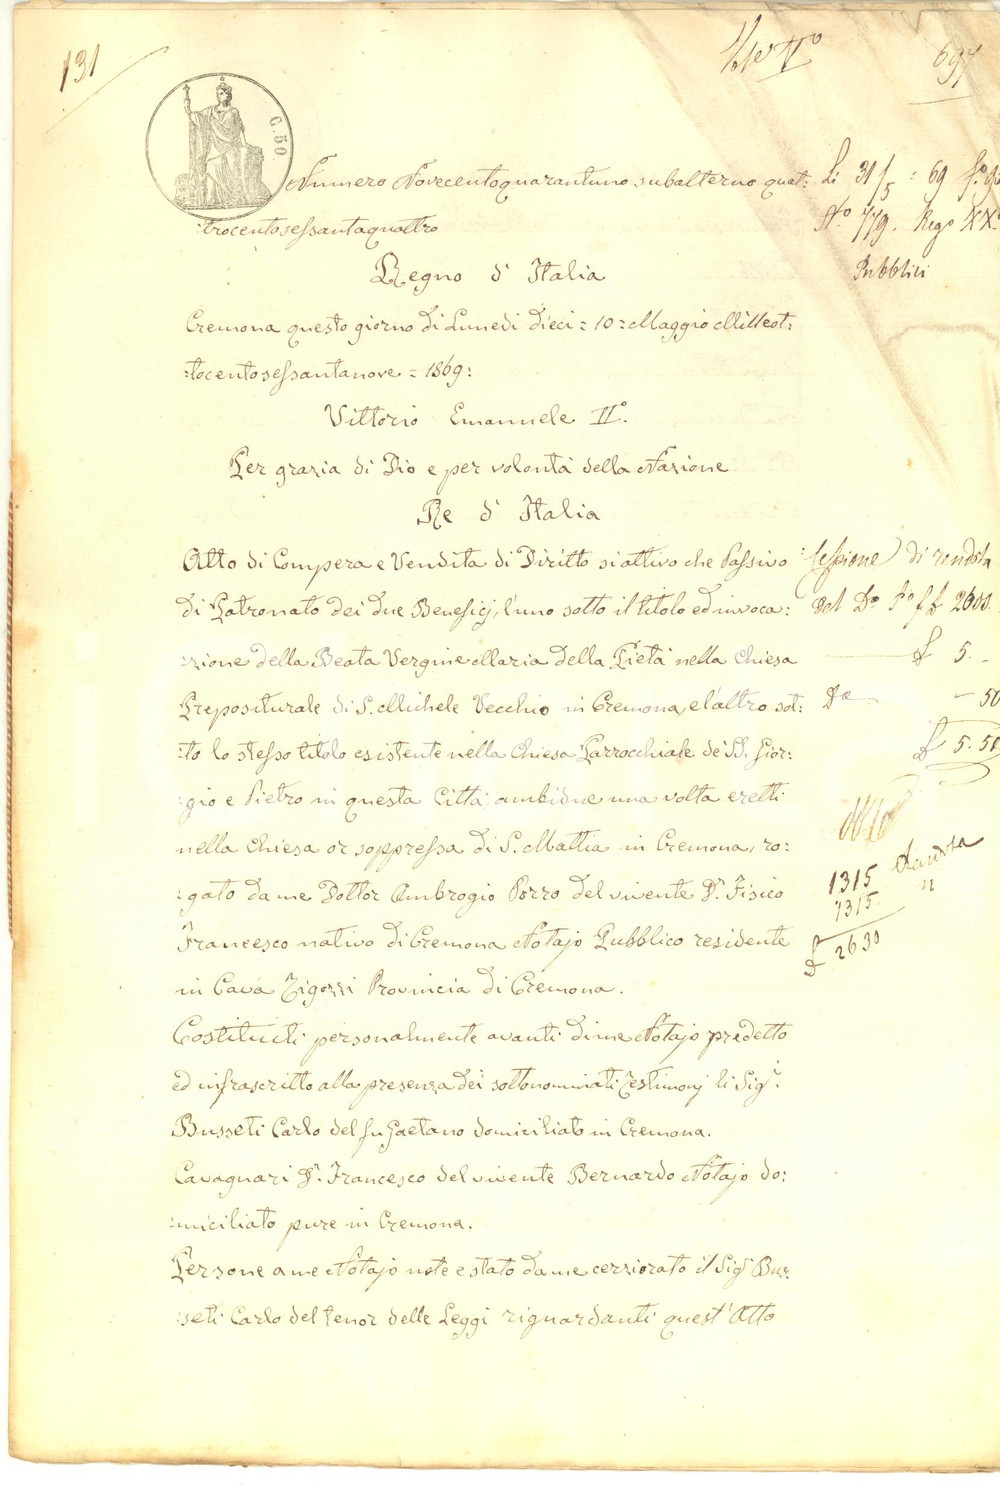 131
697
C. 50
Numero Novecentoquarantuno subalterno quat:
:trocentosessantaquattro
Li 31/5 : 69
No 779. Rego XX
Pubblici
Regno d' Italia
Cremona questo giorno di Lunedì dieci = 10 = Maggio Milleot:
:tocentosessantanove = 1869:
Vittorio Emanuele IIo.
Per grazia di Dio e per volontà della Nazione
Re d' Italia
Atto di Compera e Vendita di Diritto sì attivo che Passivo
di Patronato dei due Beneficj, l'uno sotto il titolo ed invoca:
:zione della Beata Vergine Maria della Pietà nella Chiesa
Prepositurale di S. Michele Vecchio in Cremona, e l'altro sot:
:to lo stesso titolo esistente nella Chiesa Parrocchiale de' SS. Gior:
:gio e Pietro in questa Città, ambidue una volta eretti
nella Chiesa or soppressa di S. Mattia in Cremona, ro:
:gato da me Dottor Ambrogio Porro del vivente Dr. Fisico
Francesco nativo di Cremona Notajo Pubblico residente
in Cava Tigozzi Provincia di Cremona.
Cessione di rendita
del Do 2600.
£ 5. -
- 50
£ 5. 50
1315
1315
£ 2630
Costituiti personalmente avanti di me Notajo predetto
ed infrascritto alla presenza dei sottonominati Testimonj li Sigri.
Busseti Carlo del fu Gaetano domiciliato in Cremona.
Cavagnari Dr. Francesco del vivente Bernardo Notajo do:
:miciliato pure in Cremona.
Persone a me Notajo note e stato da me cerziorato il Sigr Bus:
:seti Carlo del tenor delle Leggi riguardanti quest' Atto